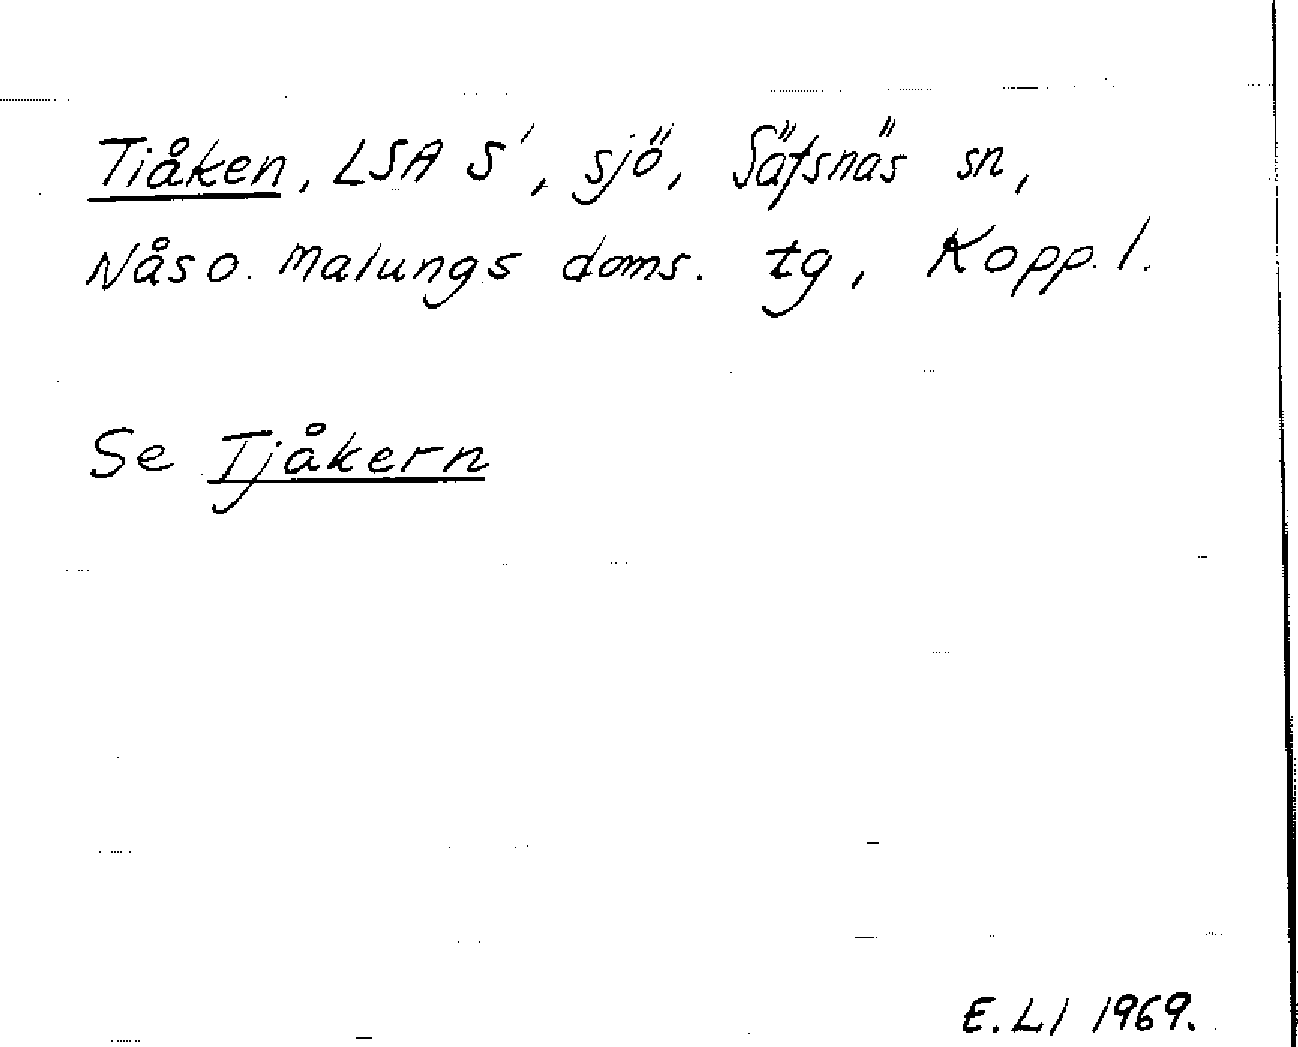 Tiåken, LSA S', sjö, Säfsnäs sn,
Nås o. Malungs doms. tg, Kopp. l.
Se Tjåkern
E. Ll 1969.